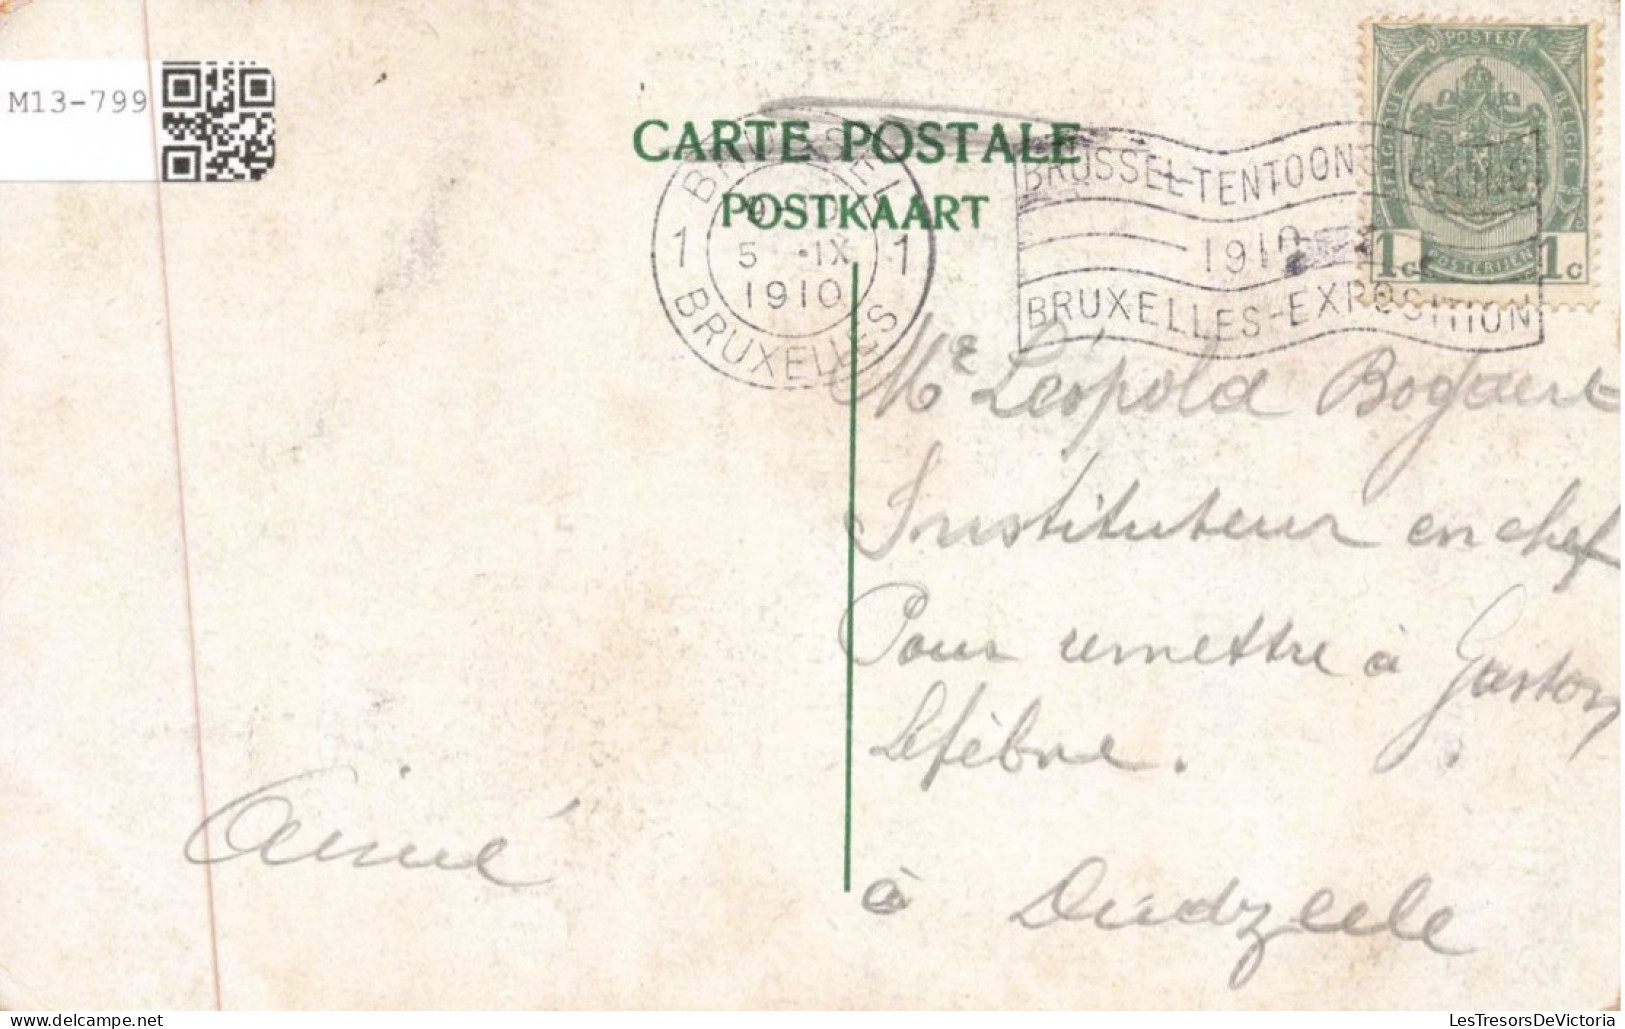 M13-799
CARTE POSTALE
POSTKAART
BRUSSEL
1 5 IX 1
1910
BRUXELLES
BRUSSEL-TENTOONSTELLING
1910
BRUXELLES-EXPOSITION
POSTES
BELGIQUE BELGIE
1c POSTERIJEN 1c
Mr Léopold Bogaert
Instituteur en chef
Pour remettre à Gaston
Lefèbre.
à Dudzeele
Aimé
delcampe.net
LesTresorsDeVictoria